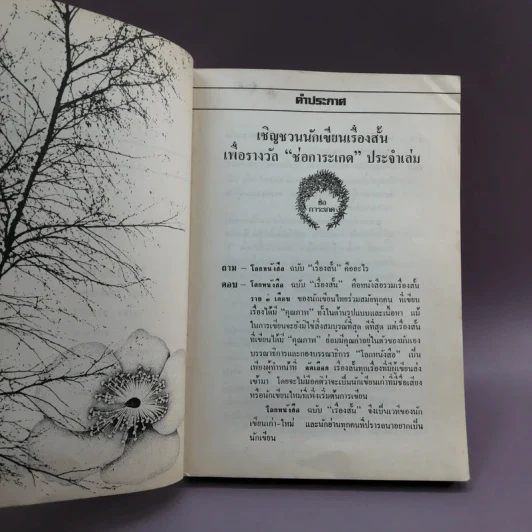 คำประกาศ
เชิญชวนนักเขียนเรื่องสั้น
เพื่อรางวัล “ช่อการะเกด” ประจำเล่ม
ช่อ
การะเกด
ถาม – โลกหนังสือ ฉบับ “เรื่องสั้น” คืออะไร
ตอบ – โลกหนังสือ ฉบับ “เรื่องสั้น” คือหนังสือรวมเรื่องสั้น
ราย ๓ เดือน ของนักเขียนไทยร่วมสมัยทุกคน ที่เขียน
เรื่องได้มี “คุณภาพ” ทั้งในด้านรูปแบบและเนื้อหา แม้
ในการเขียนจะยังมิใช่สิ่งสมบูรณ์ที่สุด ดีที่สุด แต่เรื่องสั้น
ที่เขียนได้มี “คุณภาพ” ย่อมมีคุณค่าอยู่ในตัวของมันเอง
บรรณาธิการและกองบรรณาธิการ “โลกหนังสือ” เป็น
เพียงผู้ทำหน้าที่ คัดเลือก เรื่องสั้นทุกเรื่องที่มีผู้เขียนส่ง
เข้ามา โดยจะไม่มีอคติว่าจะเป็นนักเขียนเก่าที่มีชื่อเสียง
หรือนักเขียนใหม่ที่เพิ่งเริ่มต้นการเขียน
โลกหนังสือ ฉบับ “เรื่องสั้น” จึงเป็นเวทีของนัก
เขียนเก่า-ใหม่ และนักอ่านทุกคนที่ปรารถนาอยากเป็น
นักเขียน